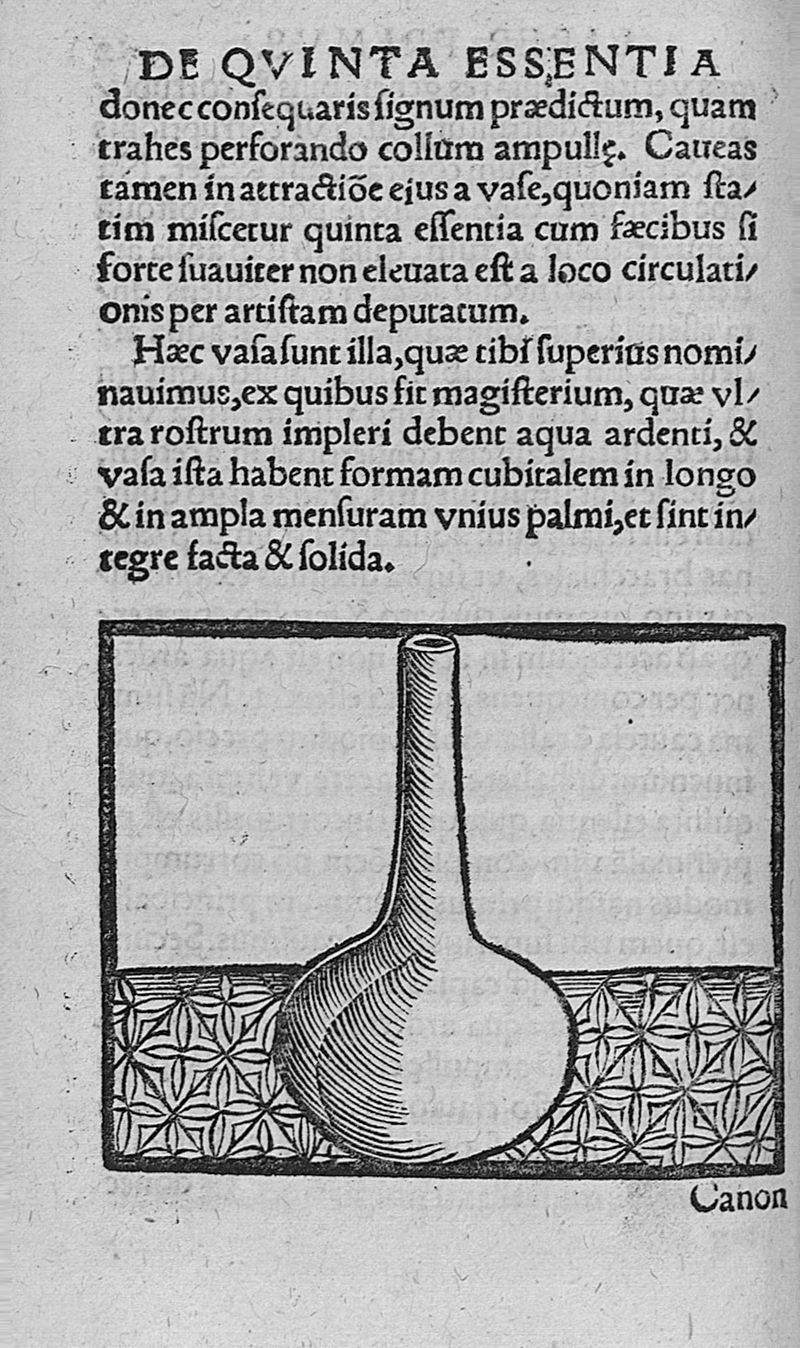 DE QVINTA ESSENTIA
donec conſequaris ſignum prædictum, quam
trahes perforando collum ampullę. Caueas
tamen in attractiõe ejus a vaſe, quoniam ſta/
tim miſcetur quinta eſſentia cum fæcibus ſi
forte ſuauiter non eleuata eſt a loco circulati/
onis per artiſtam deputatum.
Hæc vaſa ſunt illa, quæ tibi ſuperius nomi/
nauimus, ex quibus fit magiſterium, quæ vl/
tra roſtrum impleri debent aqua ardenti, &
vaſa iſta habent formam cubitalem in longo
& in ampla menſuram vnius palmi, et ſint in/
tegre facta & ſolida.
Canon